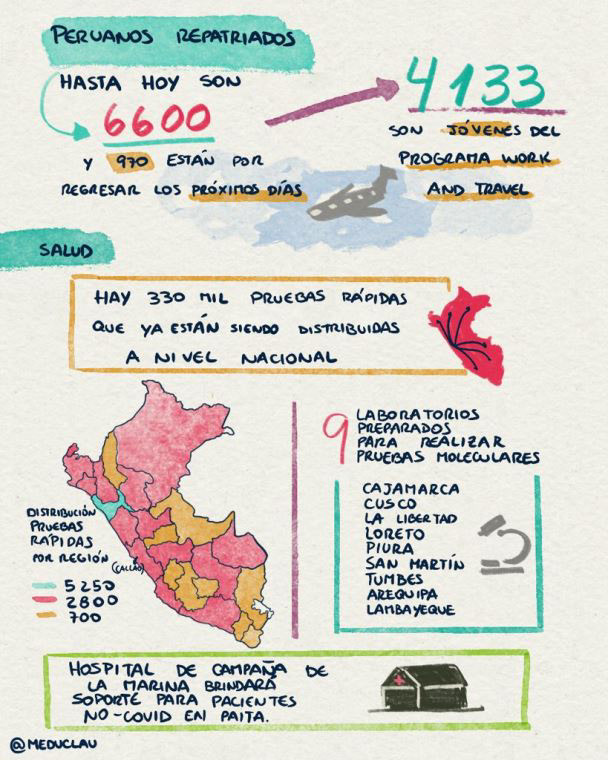 PERUANOS REPATRIADOS
HASTA HOY SON
6600
Y 970 ESTÁN POR
REGRESAR LOS PRÓXIMOS DÍAS
4133
SON JÓVENES DEL
PROGRAMA WORK
AND TRAVEL
SALUD
HAY 330 MIL PRUEBAS RÁPIDAS
QUE YA ESTÁN SIENDO DISTRIBUIDAS
A NIVEL NACIONAL
DISTRIBUCIÓN
PRUEBAS
RÁPIDAS
POR REGIÓN
(CALLAO)
5250
2800
700
9 LABORATORIOS
PREPARADOS
PARA REALIZAR
PRUEBAS MOLECULARES
CAJAMARCA
CUSCO
LA LIBERTAD
LORETO
PIURA
SAN MARTÍN
TUMBES
AREQUIPA
LAMBAYEQUE
HOSPITAL DE CAMPAÑA DE
LA MARINA BRINDARÁ
SOPORTE PARA PACIENTES
NO-COVID EN PAITA.
@MEDUCLAU